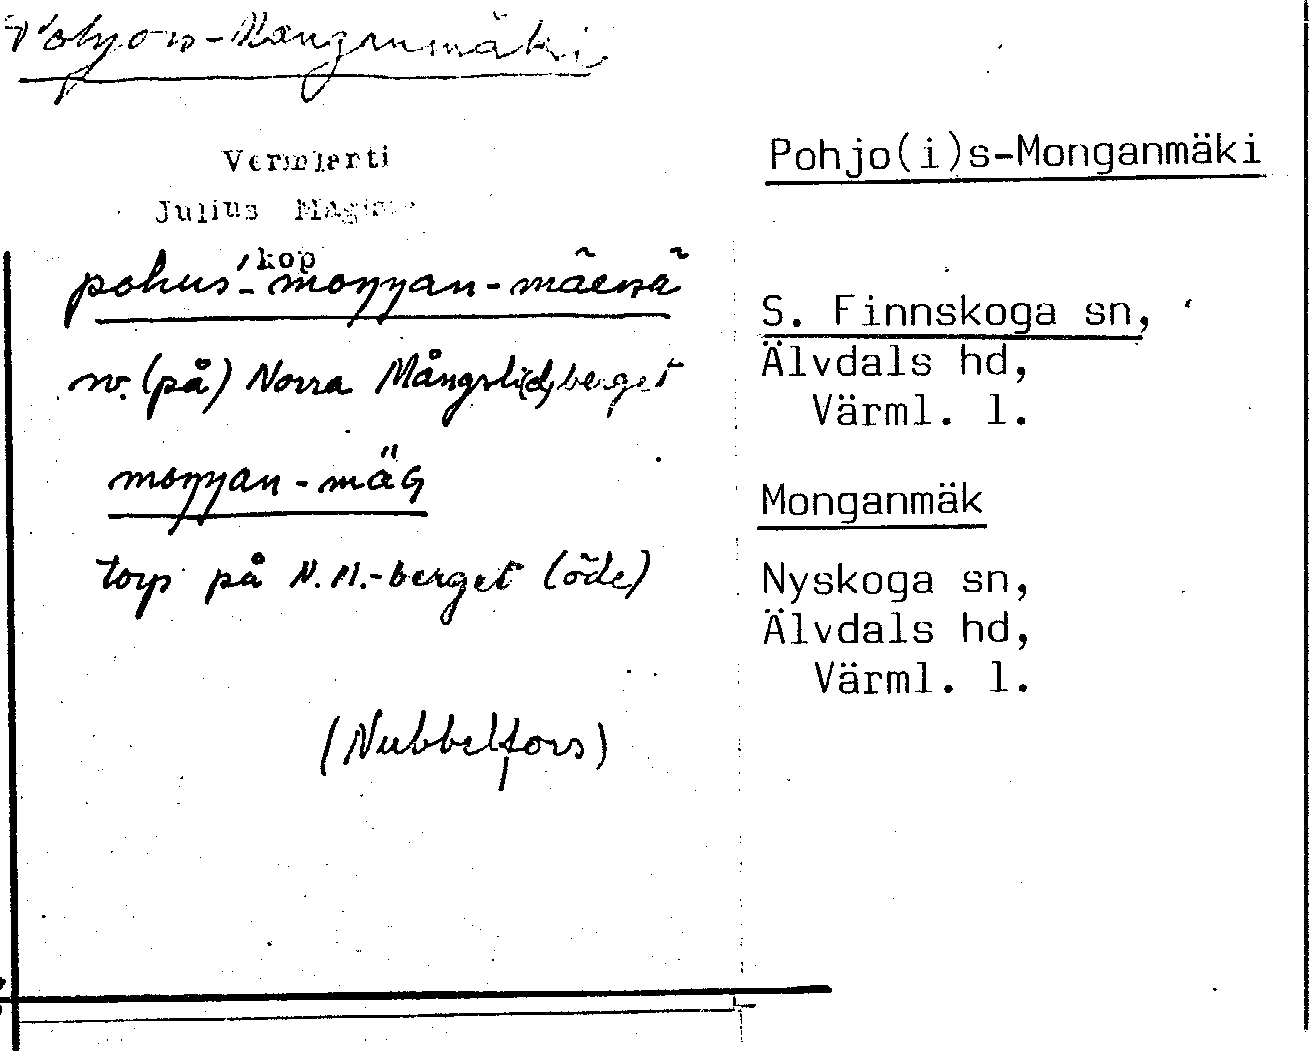 Pohjois-Monganmäki
Vermlanti
Julius Mägiste
kop
pohus'-moŋŋan-mäe͔s̀ä
Norra Mångslidsberget
(på)
moŋŋan-mäG
torp på N. M.-berget (öde)
(Nubbelfors)
Pohjo(i)s-Monganmäki
S. Finnskoga sn,
Älvdals hd,
Värml. l.
Monganmäk
Nyskoga sn,
Älvdals hd,
Värml. l.